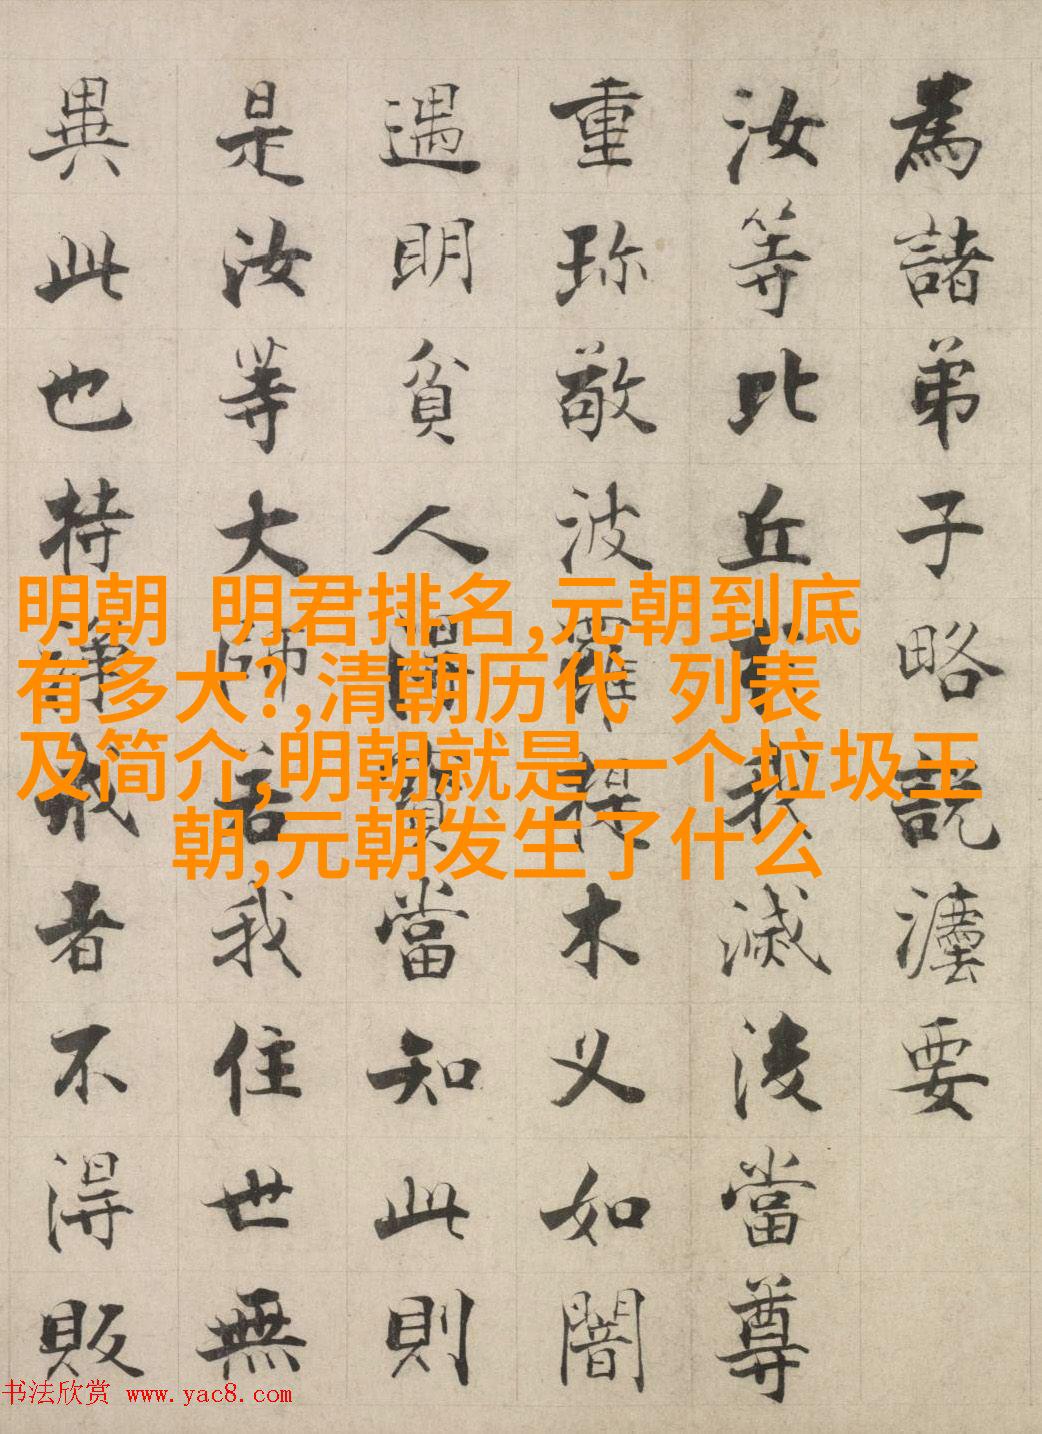 為諸弟子略説灋要
汝等比丘於我滅後當尊
重珎敬波羅提木叉如闇
遇明貧人得寶當知此則
是汝等大師若我住世無
異此也持淨戒者不得販
明朝 明君排名,元朝到底
有多大?,清朝历代 列表
及简介,明朝就是一个垃圾王
朝,元朝发生了什么
书法欣赏 www.yac8.com